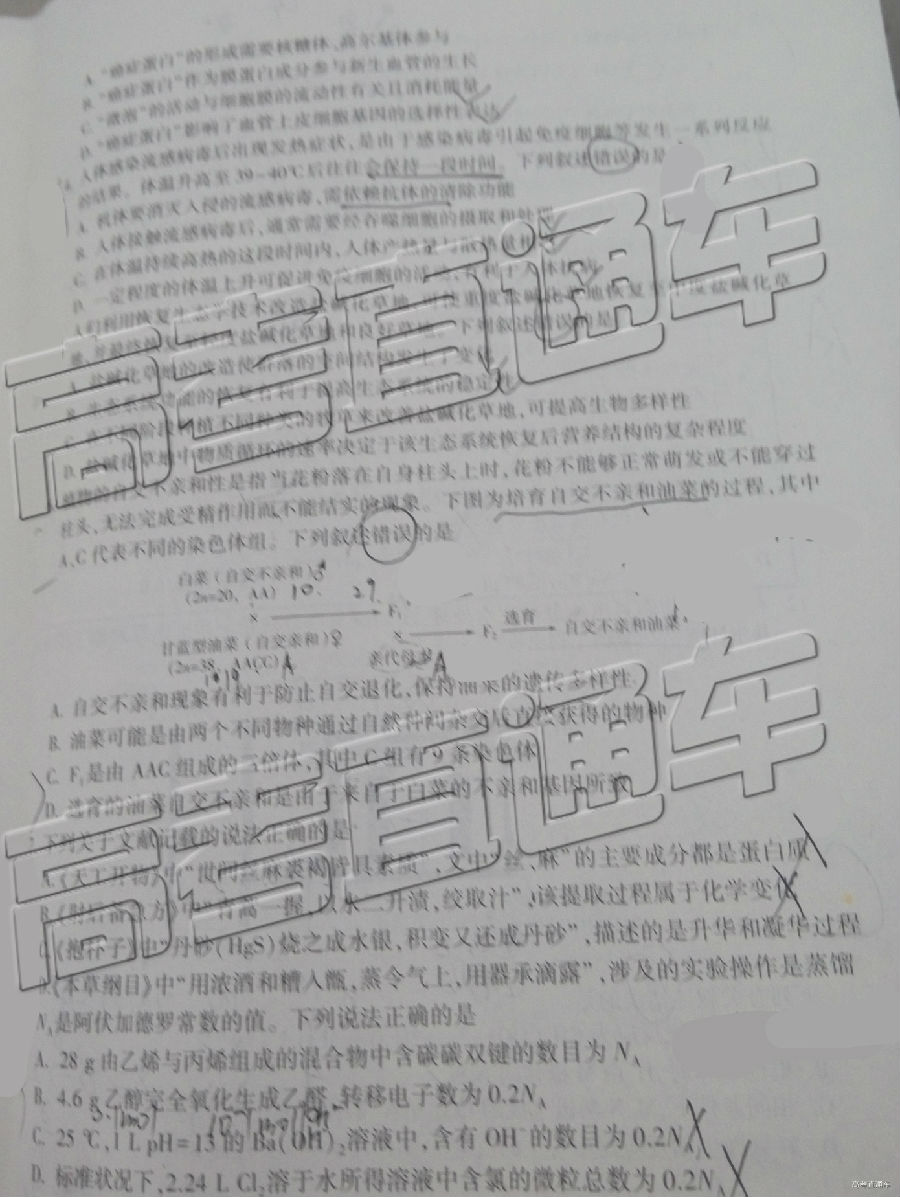 A. “癌症蛋白”的形成需要核糖体、高尔基体参与
B. “癌症蛋白”作为膜蛋白成分参与新生血管的生长
C. “微泡”的活动与细胞膜的流动性有关且消耗能量
D. “癌症蛋白”影响了血管上皮细胞基因的选择性表达
人体感染流感病毒后出现发热症状,是由于感染病毒引起免疫细胞等发生一系列反应
的结果。体温升高至39~40℃后往往会保持一段时间。下列叙述错误的是
A. 机体要消灭入侵的流感病毒,需依赖抗体的清除功能
B. 人体接触流感病毒后,通常需要经吞噬细胞的摄取和处理
C. 在体温持续高热的这段时间内,人体产热量与散热量相
D. 一定程度的体温上升可促进免疫细胞的活动,有利于人体抗病
人们利用恢复生态学技术改造盐碱化草地,可使重度盐碱化草地恢复至中度盐碱化草
盐碱化草地和良好草地。下列叙述错误的是
A. 盐碱化草地的改造使群落的空间结构发生了变化
B. 生态系统功能的恢复有利于提高生态系统的稳定性
C. 在不同阶段种植不同种类的牧草来改善盐碱化草地,可提高生物多样性
D. 盐碱化草地中物质循环的速率决定于该生态系统恢复后营养结构的复杂程度
植物的自交不亲和性是指当花粉落在自身柱头上时,花粉不能够正常萌发或不能穿过
柱头,无法完成受精作用而不能结实的现象。下图为培育自交不亲和油菜的过程,其中
A、C代表不同的染色体组。下列叙述错误的是
白菜(自交不亲和)♂
(2n=20、AA) 10 29
× F₁
甘蓝型油菜(自交亲和)♀ × F₂ 选育 自交不亲和油菜
(2n=38、AACC) 亲代母本
A. 自交不亲和现象有利于防止自交退化,保持油菜的遗传多样性
B. 油菜可能是由两个不同物种通过自然种间杂交后直接获得的物种
C. F₁是由AAC组成的三倍体,其中C组有9条染色体
D. 选育的油菜自交不亲和是由于来自于白菜的不亲和基因所致
7.下列关于文献记载的说法正确的是
A.《天工开物》中“世间丝麻裘褐皆具素质”,文中“丝、麻”的主要成分都是蛋白质
B.《肘后备急方》中“青蒿一握,以水二升渍,绞取汁”,该提取过程属于化学变化
C.《抱朴子》中“丹砂(HgS)烧之成水银,积变又还成丹砂”,描述的是升华和凝华过程
D.《本草纲目》中“用浓酒和糟入甑,蒸令气上,用器承滴露”,涉及的实验操作是蒸馏
N_A是阿伏加德罗常数的值。下列说法正确的是
A. 28 g由乙烯与丙烯组成的混合物中含碳碳双键的数目为N_A
B. 4.6 g乙醇完全氧化生成乙醛,转移电子数为0.2N_A
C. 25 ℃,1 L pH=13的Ba(OH)₂溶液中,含有OH⁻的数目为0.2N_A
D. 标准状况下,2.24 L Cl₂溶于水所得溶液中含氯的微粒总数为0.2N_A
高考直通车
高考直通车
高考直通车